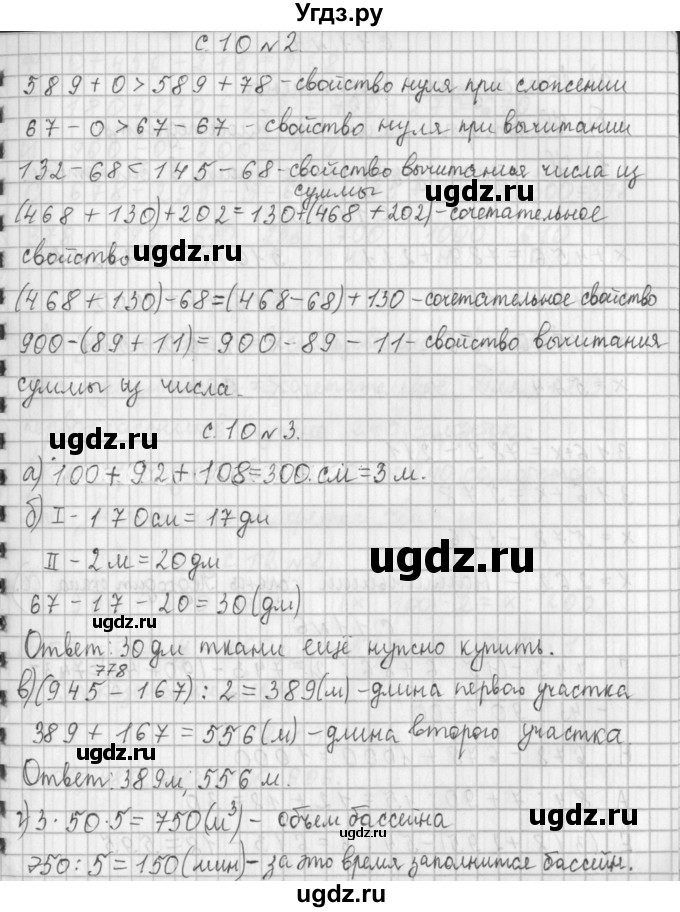 Угдз.ру
с. 10 №2.
589+0>589+78-свойство нуля при сложении
67-0>67-67 - свойство нуля при вычитании
132-68<145-68-свойство вычитания числа из
суммы
ugdz.ru
(468+130)+202=130+(468+202)-сочетательное
свойство
ugdz.ru
(468+130)-68=(468-68)+130-сочетательное свойство
900-(89+11)=900-89-11-свойство вычитания
суммы из числа.
ugdz.ru
с. 10 №3.
ugdz.ru
а) 100+92+108=300 см=3 м.
б) I-170см=17дм
ugdz.ru
II-2м=20дм
ugdz.ru
67-17-20=30(дм)
Ответ: 30 дм ткани ещё нужно купить.
778
в)(945-167):2=389(м)-длина первого участка
389+167=556(м)-длина второго участка
ugdz.ru
Ответ: 389м, 556 м.
ugdz.ru
г) 3·50·5=750(м³)- объем бассейна
ugdz.ru
750:5=150(мин)-за это время заполнится бассейн.
ugdz.ru